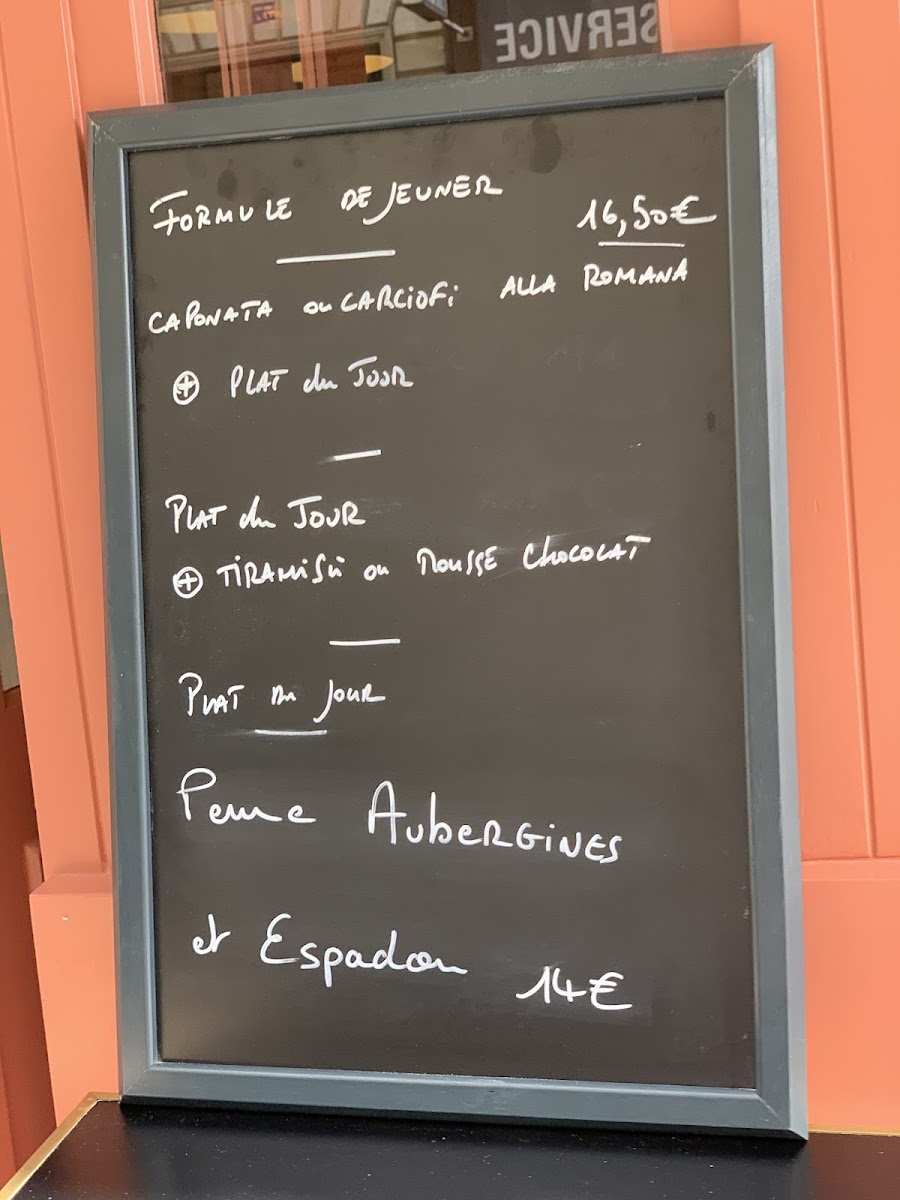 SERVICE
FORMULE DEJEUNER 16,50€
CAPONATA ou CARCIOFi ALLA ROMANA
⊕ PLAT du JOUR
PLAT du JOUR
⊕ TiRAMiSÙ ou MOUSSE CHOCOLAT
PLAT du JOUR
Penne AubERGiNES
et Espadon 14€